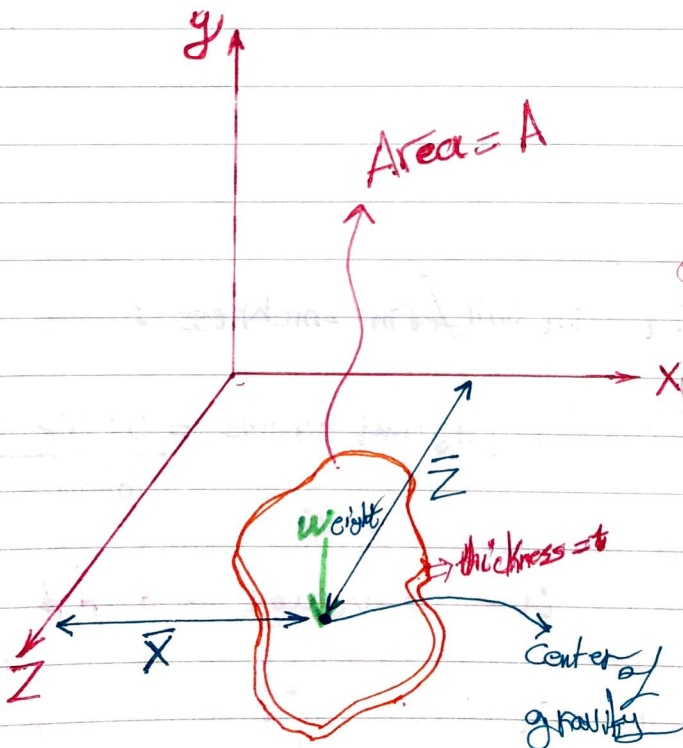 y
Area = A
X
Z̄
Weight
thickness = t
X̄
Z
Center of
gravity